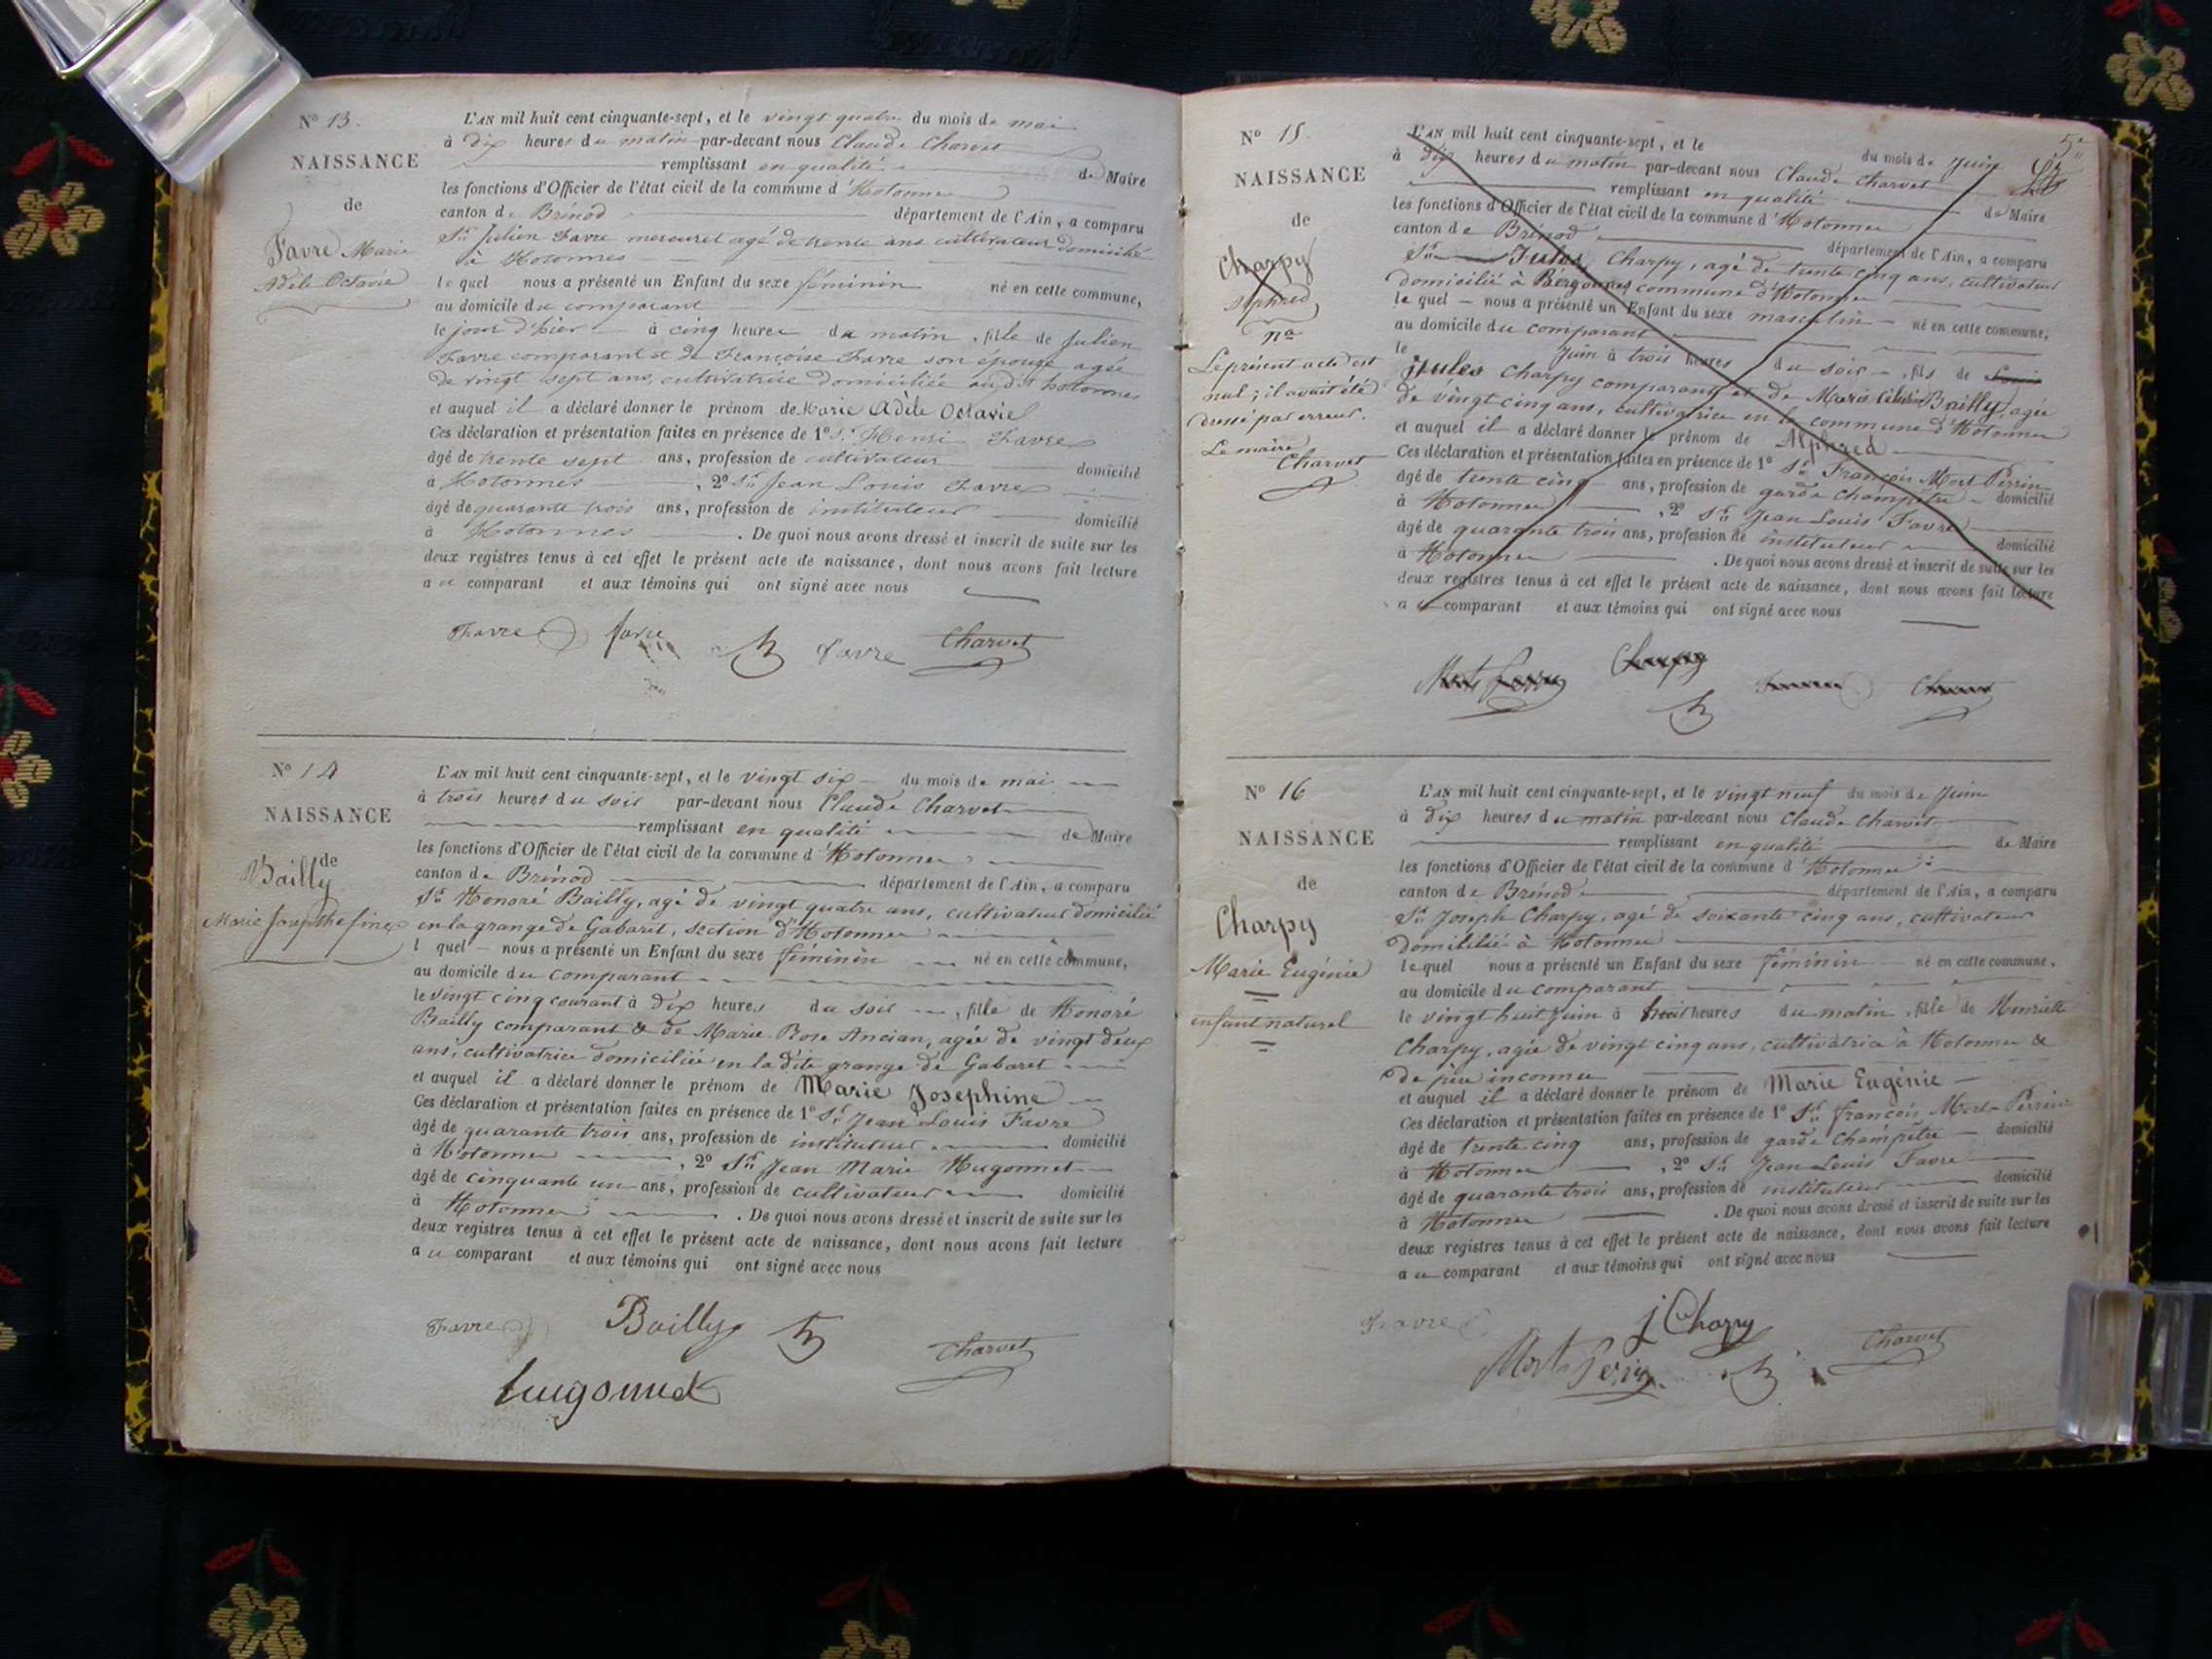 Nº 13.
NAISSANCE
de
Favre Marie
Adèle Octavie
L'AN mil huit cent cinquante-sept, et le vingt quatre du mois de mai
à dix heures du matin par-devant nous Claude Charvet
remplissant en qualité de Maire
les fonctions d'Officier de l'état civil de la commune d'Hotonnes
canton de Brénod département de l'Ain, a comparu
Sr. Julien Favre mercuret agé de trente ans cultivateur domicilié
à Hotonnes
lequel nous a présenté un Enfant du sexe féminin né en cette commune,
au domicile du comparant
le jour d'hier à cinq heures du matin, fille de Julien
Favre comparant et de Françoise Favre son épouse agée
de vingt sept ans, cultivatrice domiciliée audit hotonnes
et auquel il a déclaré donner le prénom de Marie Adèle Octavie
Ces déclaration et présentation faites en présence de 1º Sr. Henri Favre
âgé de trente sept ans, profession de cultivateur domicilié
à Hotonnes, 2º Sr. Jean Louis Favre
âgé de quarante trois ans, profession de instituteur domicilié
à Hotonnes. De quoi nous avons dressé et inscrit de suite sur les
deux registres tenus à cet effet le présent acte de naissance, dont nous avons fait lecture
au comparant et aux témoins qui ont signé avec nous
Favre favre Favre Charvet
Nº 14
NAISSANCE
de
Bailly
Marie Josephine
L'AN mil huit cent cinquante-sept, et le vingt six du mois de mai
à trois heures du soir par-devant nous Claude Charvet
remplissant en qualité de Maire
les fonctions d'Officier de l'état civil de la commune d'Hotonnes
canton de Brénod département de l'Ain, a comparu
Sr. Honoré Bailly, agé de vingt quatre ans, cultivateur domicilié
en la grange de Gabaret, section d'Hotonnes
l quel nous a présenté un Enfant du sexe féminin né en cette commune,
au domicile du comparant
le vingt cinq courant à dix heures du soir, fille de Honoré
Bailly comparant & de Marie Rose Ancian, agée de vingt deux
ans, cultivatrice domiciliée en la dite grange de Gabaret
et auquel il a déclaré donner le prénom de Marie Josephine
Ces déclaration et présentation faites en présence de 1º Sr. Jean Louis Favre
âgé de quarante trois ans, profession de instituteur domicilié
à Hotonnes, 2º Sr. Jean Marie Hugonnet
âgé de cinquante un ans, profession de cultivateur domicilié
à Hotonnes. De quoi nous avons dressé et inscrit de suite sur les
deux registres tenus à cet effet le présent acte de naissance, dont nous avons fait lecture
au comparant et aux témoins qui ont signé avec nous
Favre Bailly Charvet
hugonnet
5e
Nº 15.
NAISSANCE
de
Charpy
Alphred
Le présent acte est
nul ; il avait été
dressé par erreur.
Le maire
Charvet
L'AN mil huit cent cinquante-sept, et le du mois de Juin
à dix heures du matin par-devant nous Claude Charvet
remplissant en qualité de Maire
les fonctions d'Officier de l'état civil de la commune d'Hotonnes
canton de Brénod département de l'Ain, a comparu
Sr. Jules Charpy, agé de trente cinq ans, cultivateur
domicilié à Bergonnes, commune d'Hotonnes
lequel nous a présenté un Enfant du sexe masculin né en cette commune,
au domicile du comparant
le Juin à trois heures du soir, fils de
Jules Charpy comparant et de Marie Bailly, agée
de vingt cinq ans, cultivatrice en la commune d'Hotonnes
et auquel il a déclaré donner le prénom de Alphred
Ces déclaration et présentation faites en présence de 1º Sr. François Mort-Perrin
âgé de trente cinq ans, profession de garde champêtre domicilié
à Hotonnes, 2º Sr. Jean Louis Favre
âgé de quarante trois ans, profession de instituteur domicilié
à Hotonnes. De quoi nous avons dressé et inscrit de suite sur les
deux registres tenus à cet effet le présent acte de naissance, dont nous avons fait lecture
au comparant et aux témoins qui ont signé avec nous
Charpy
Nº 16
NAISSANCE
de
Charpy
Marie Eugénie
enfant naturel
L'AN mil huit cent cinquante-sept, et le vingt neuf du mois de Juin
à dix heures du matin par-devant nous Claude Charvet
remplissant en qualité de Maire
les fonctions d'Officier de l'état civil de la commune d'Hotonnes
canton de Brénod département de l'Ain, a comparu
Sr. Joseph Charpy, agé de soixante cinq ans, cultivateur
domicilié à Hotonnes
lequel nous a présenté un Enfant du sexe féminin né en cette commune,
au domicile du comparant
le vingt huit Juin à trois heures du matin, fille de Henriette
Charpy, agée de vingt cinq ans, cultivatrice à Hotonnes &
de père inconnu
et auquel il a déclaré donner le prénom de Marie Eugénie
Ces déclaration et présentation faites en présence de 1º Sr. françois Mort-Perrin
âgé de trente cinq ans, profession de garde champêtre domicilié
à Hotonnes, 2º Sr. Jean Louis Favre
âgé de quarante trois ans, profession de instituteur domicilié
à Hotonnes. De quoi nous avons dressé et inscrit de suite sur les
deux registres tenus à cet effet le présent acte de naissance, dont nous avons fait lecture
au comparant et aux témoins qui ont signé avec nous
Favre j Charpy Charvet
Mort Perrin